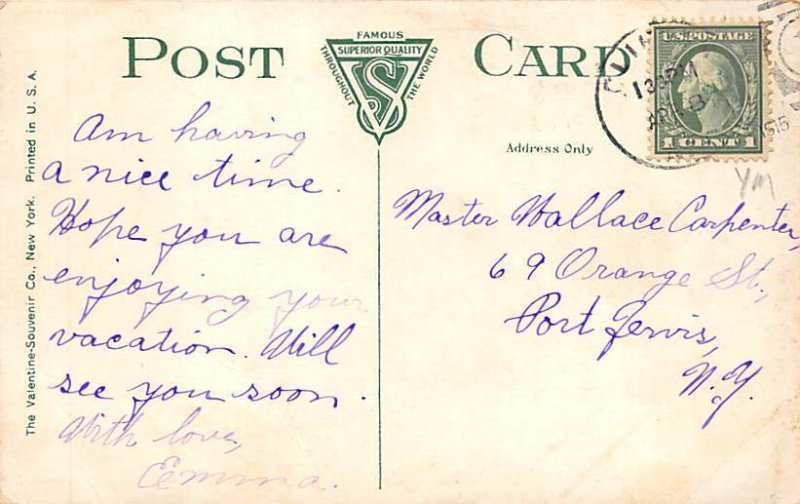 POST CARD
FAMOUS
SUPERIOR QUALITY
THROUGHOUT THE WORLD
VS
Address Only
U.S. POSTAGE
1 CENT 1
1915
YM
The Valentine-Souvenir Co., New York. Printed in U. S. A.
Am having
a nice time.
Hope you are
enjoying your
vacation. Will
see you soon.
With love,
Emma.
Master Wallace Carpenter,
69 Orange St.,
Port Jervis,
N.Y.